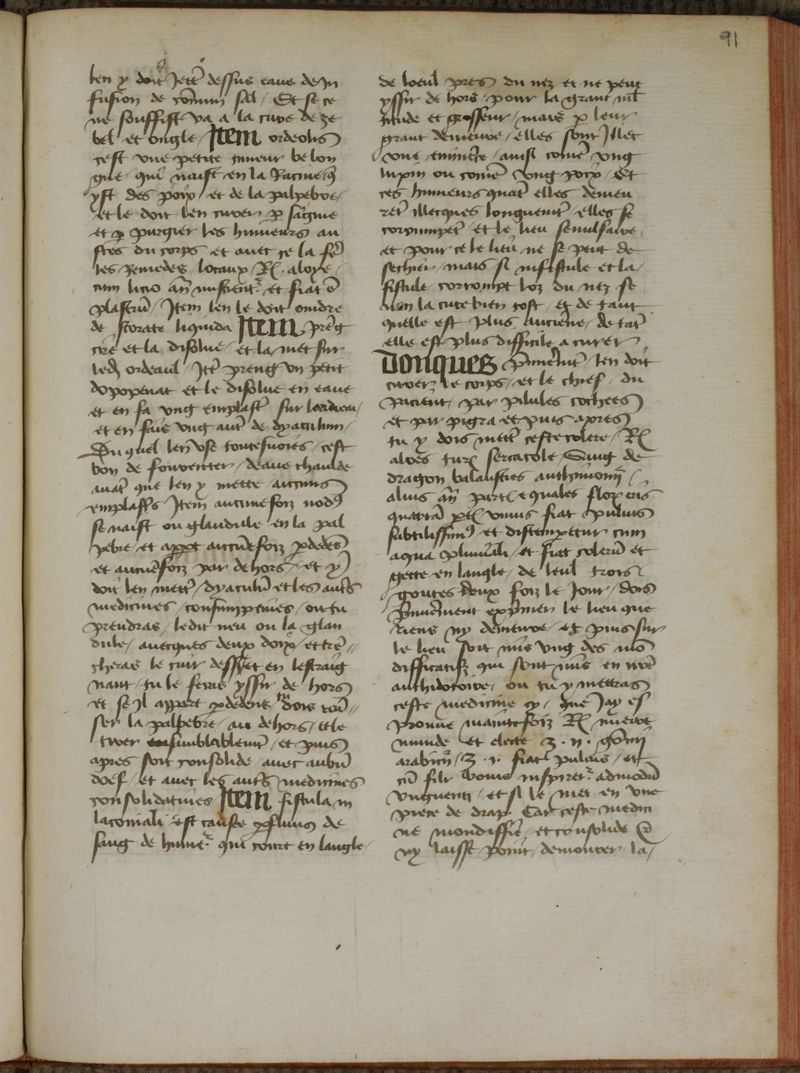 91
len y doit Jett dessus eaue de in
fusion de cōmun sel / Et se ce
ne souffist va a la cure de ze
bel et ongle / Item ordeolus
cest vne petite tumeur belon
gue / qui naist en la Racine q̄
yst des poix / et de la palpebre /
et le doit len curer p sāgnie
et p purgier les humeurs au
stes du corps et auec ce la fē
les Remedes locaux R. aloye /
cum et fiat ē
plastrū / Item len le doit oindre
de storate liquida Item / prēg
cire et la disolue / et la met sur
led ordeaul / Itē preng vn petit
dopopenat et le disolue en eaue
et en fa vng emplast sur
et en fais vng aut de dyaculum /
Du quel len vse toutesuoies / cest
bon de fomenter / deaue chaulde
auāt que len y mette aucuns
emplasts Item aucunefoiz nodꝰ
se naist ou glandule en la pal
pebre / et appt aucūefoiz p dedēs
et aucūefoiz par dehors / et y
doit len mett / dyaculū et les auts
medicines / consumptiues / ou tu
prendras / ledit neu ou la glan
dule / auecques deux doiz / et trē /
cheras le cuir dessꝰ et en lestraig
nant / tu le feras yssir de hors
et se il appert p dedēs / tu dois
ser la palpebre / au dehors / et le
curer semblablemt / et puis
apres soit consolide auec aubū
doef / et auec les auts medicines
consolidatiues Item fistula in
lacrimali / est causee p flux de
sang de humē qui court en langle
de loeul pres du nez et ne peut
yssir de hors / pour la grant mĺ
titude et grosseur / mais p leur
grant demeure / elles font illec
vne eminēce / ainsi comē vng
lupin ou comē vng poix / Et
ces humeurs quāt elles demeu
rēt illecques longuemt / elles se
corrumpēt et le lieu se
et pour ce le lieu ne se peut de
sechier / mais si infistule et la /
fistule corrompt loz du nez / se
non la cure bien tost / et de tant
quelle est plus anciēne / de tāt
elle est plus difficile a curer /
Donques p̄mieremt / len doit
curer le corps / et le chief / du
pacient / par pilules cochees
et par pigra et puis apres
tu y dois mett ceste colere / R
aloes turꝭ sercacole / sāug de
dragon balausties anthimonij /
aluis an pties equales floꝝ eris
quartā ptē vnius fiat puluis
subtilissimꝰ et distempetur cum
aqua pluuiali / et fiat coleriū et
gette en langle / de leul trois
goutes / deux foiz le Jour / dois
p̄mierement expmier le lieu que
riens ny demeure / et puis sur
le lieu soit mis vng des mō
dificatifz qui sont mis en nrē
anthidotoire / ou tu y mettras
ceste medicine cy / que Jay es
prouue maintefoiz R. mirre
munde et electe ʒ. ij. gōmi
arabici / ʒ. i. fiat puluis / et
cū fele bouis inspiretr admodū
vnguenti / et si le met en vne
piece de drap / Car ceste medici
ne mondiffie / et consolide &
ny laisse point / demourer la /